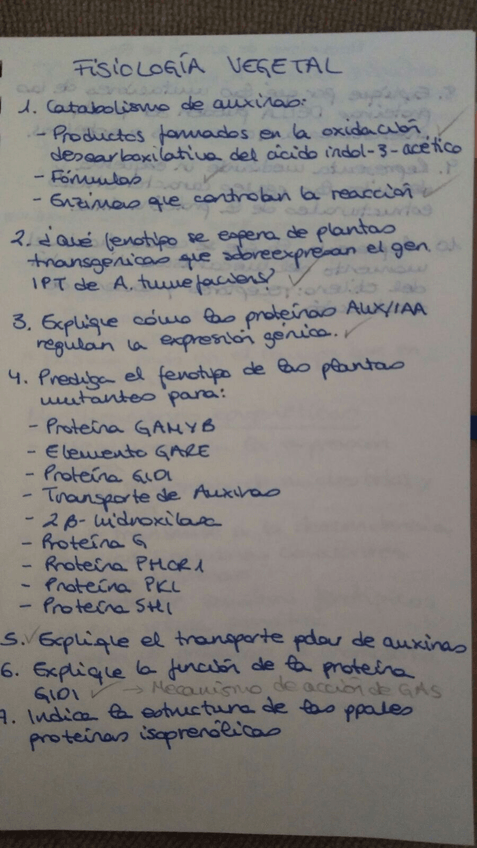 FISIOLOGÍA VEGETAL
1. Catabolismo de auxinas:
- Productos formados en la oxidación
desearboxilativa del ácido indol-3-acético
- Fórmulas
- Enzimas que controlan la reacción
2. ¿Qué fenotipo se espera de plantas
transgénicas que sobreexpresan el gen
IPT de A. tumefaciens?
3. Explique cómo las proteínas AUX/IAA
regulan la expresión génica.
4. Prediga el fenotipo de las plantas
mutantes para:
- Proteína GAMYB
- Elemento GARE
- Proteína GID1
- Transporte de Auxinas
- 2β-hidroxilasa
- Proteína G
- Proteína PHOR1
- Proteína PKL
- Proteína SHI
5. Explique el transporte polar de auxinas
6. Explique la función de la proteína
GID1 → Mecanismo de acción de GAS
7. Indica la estructura de las ppales
proteínas isoprenólicas